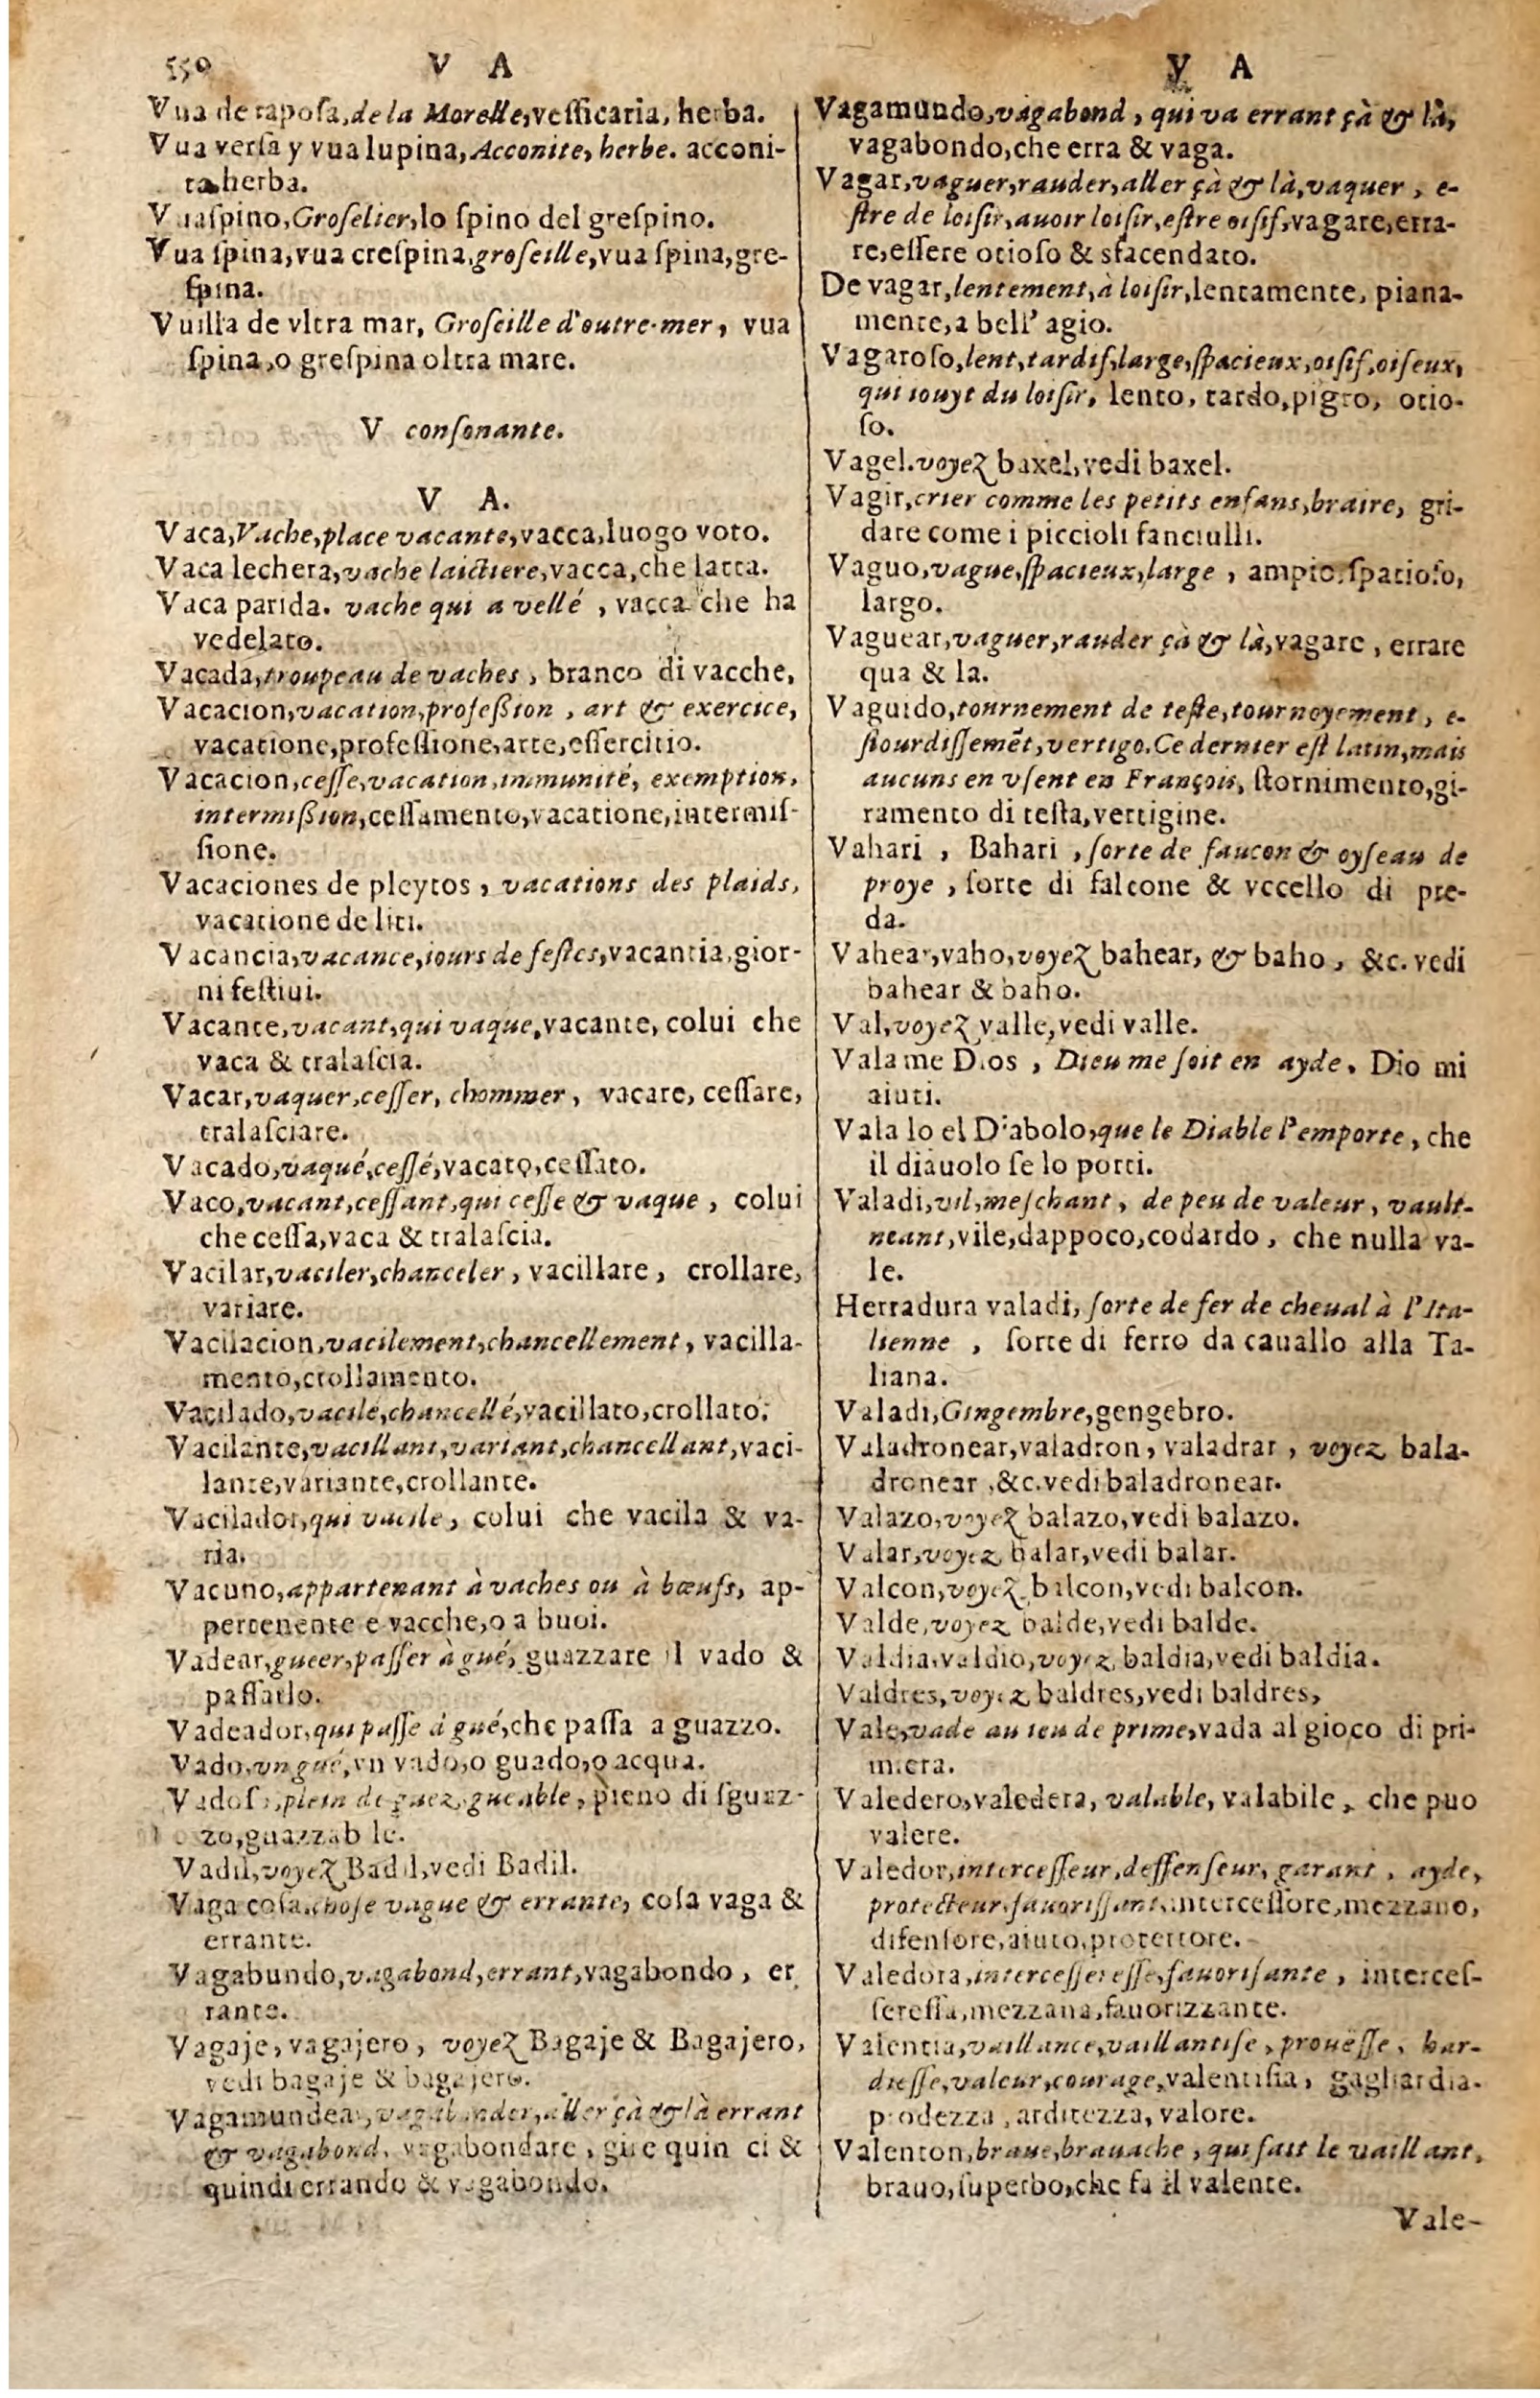 550 V A
Vua de raposa, de la Morelle, vesſicaria, herba.
Vua versa y vua lupina, Acconite, herbe. acconi-
ta herba.
Vuaſpino, Groſelier, lo ſpino del greſpino.
Vua ſpina, vua creſpina, groſeille, vua ſpina, gre-
ſpina.
Vuilla de vltra mar, Groſeille d'outre-mer, vua
ſpina, o greſpina oltra mare.
V conſonante.
V A.
Vaca, Vache, place vacante, vacca, luogo voto.
Vaca lechera, vache laictiere, vacca, che latta.
Vaca parida. vache qui a vellé, vacca che ha
vedelato.
Vacada, troupeau de vaches, branco di vacche,
Vacacion, vacation, profeßion, art & exercice,
vacatione, profeſſione, arte, eſſercitio.
Vacacion, ceſſe, vacation, immunité, exemption,
intermißion, ceſſamento, vacatione, intermiſ-
ſione.
Vacaciones de pleytos, vacations des plaids,
vacatione de liti.
Vacancia, vacance, iours de feſtes, vacantia, gior-
ni feſtiui.
Vacante, vacant, qui vaque, vacante, colui che
vaca & tralaſcia.
Vacar, vaquer, ceſſer, chommer, vacare, ceſſare,
tralaſciare.
Vacado, vaqué, ceſſé, vacato, ceſſato.
Vaco, vacant, ceſſant, qui ceſſe & vaque, colui
che ceſſa, vaca & tralaſcia.
Vacilar, vaciler, chanceler, vacillare, crollare,
variare.
Vacilacion, vacilement, chancellement, vacilla-
mento, crollamento.
Vacilado, vacilé, chancellé, vacillato, crollato.
Vacilante, vacillant, variant, chancellant, vaci-
lante, variante, crollante.
Vacilador, qui vacile, colui che vacila & va-
ria.
Vacuno, appartenant à vaches ou à bœufs, ap-
pertenente e vacche, o a buoi.
Vadear, gueer, paſſer à gué, guazzare il vado &
paſſarlo.
Vadeador, qui paſſe à gué, che paſſa a guazzo.
Vado, vn gué, vn vado, o guado, o acqua.
Vadoso, plein de guez, gueable, pieno di ſguaz-
zo, guazzabile.
Vadil, voyez Badil, vedi Badil.
Vaga coſa, choſe vague & errante, coſa vaga &
errante.
Vagabundo, vagabond, errant, vagabondo, er
rante.
Vagaje, vagajero, voyez Bagaje & Bagajero,
vedi bagaje & bagajero.
Vagamundear, vagabonder, aller çà & là errant
& vagabond, vagabondare, gire quin ci &
quindi errando & vagabondo.
V A
Vagamundo, vagabond, qui va errant çà & là,
vagabondo, che erra & vaga.
Vagar, vaguer, rauder, aller çà & là, vaquer, e-
ſtre de loiſir, auoir loiſir, eſtre oiſif, vagare, erra-
re, eſſere otioſo & sfacendato.
De vagar, lentement, à loiſir, lentamente, piana-
mente, a bell' agio.
Vagaroſo, lent, tardif, large, ſpacieux, oiſif, oiſeux,
qui iouyt du loiſir, lento, tardo, pigro, otio-
ſo.
Vagel. voyez baxel, vedi baxel.
Vagir, crier comme les petits enfans, braire, gri-
dare come i piccioli fanciulli.
Vaguo, vague, ſpacieux, large, ampio, ſpatioſo,
largo.
Vaguear, vaguer, rauder çà & là, vagare, errare
qua & la.
Vaguido, tournement de teſte, tournoyement, e-
ſtourdiſſemẽt, vertigo. Ce dernier eſt latin, mais
aucuns en vſent en François, ſtornimento, gi-
ramento di teſta, vertigine.
Vahari, Bahari, ſorte de faucon & oyſeau de
proye, ſorte di falcone & vccello di pre-
da.
Vahear, vaho, voyez bahear, & baho, &c. vedi
bahear & baho.
Val, voyez valle, vedi valle.
Vala me Dios, Dieu me ſoit en ayde, Dio mi
aiuti.
Vala lo el Diabolo, que le Diable l'emporte, che
il diauolo ſe lo porti.
Valadi, vil, meſchant, de peu de valeur, vault-
neant, vile, dappoco, codardo, che nulla va-
le.
Herradura valadi, ſorte de fer de cheual à l'Ita-
lienne, ſorte di ferro da cauallo alla Ta-
liana.
Valadi, Gingembre, gengebro.
Valadronear, valadron, valadrar, voyez bala-
dronear, &c. vedi baladronear.
Valazo, voyez balazo, vedi balazo.
Valar, voyez balar, vedi balar.
Valcon, voyez balcon, vedi balcon.
Valde, voyez balde, vedi balde.
Valdia, valdio, voyez baldia, vedi baldia.
Valdres, voyez baldres, vedi baldres,
Vale, vade au ieu de prime, vada al gioco di pri-
miera.
Valedero, valedera, valable, valabile, che puo
valere.
Valedor, interceſſeur, deffenſeur, garant, ayde,
protecteur, fauoriſſant, interceſſore, mezzano,
difenſore, aiuto, protettore.
Valedora, interceſſereſſe, fauoriſante, interceſ-
ſereſſa, mezzana, fauorizzante.
Valentia, vaillance, vaillantiſe, prouëſſe, har-
dieſſe, valeur, courage, valentiſia, gagliardia.
prodezza, arditezza, valore.
Valenton, braue, brauache, qui fait le vaillant,
brauo, ſuperbo, che fa il valente.
Vale-